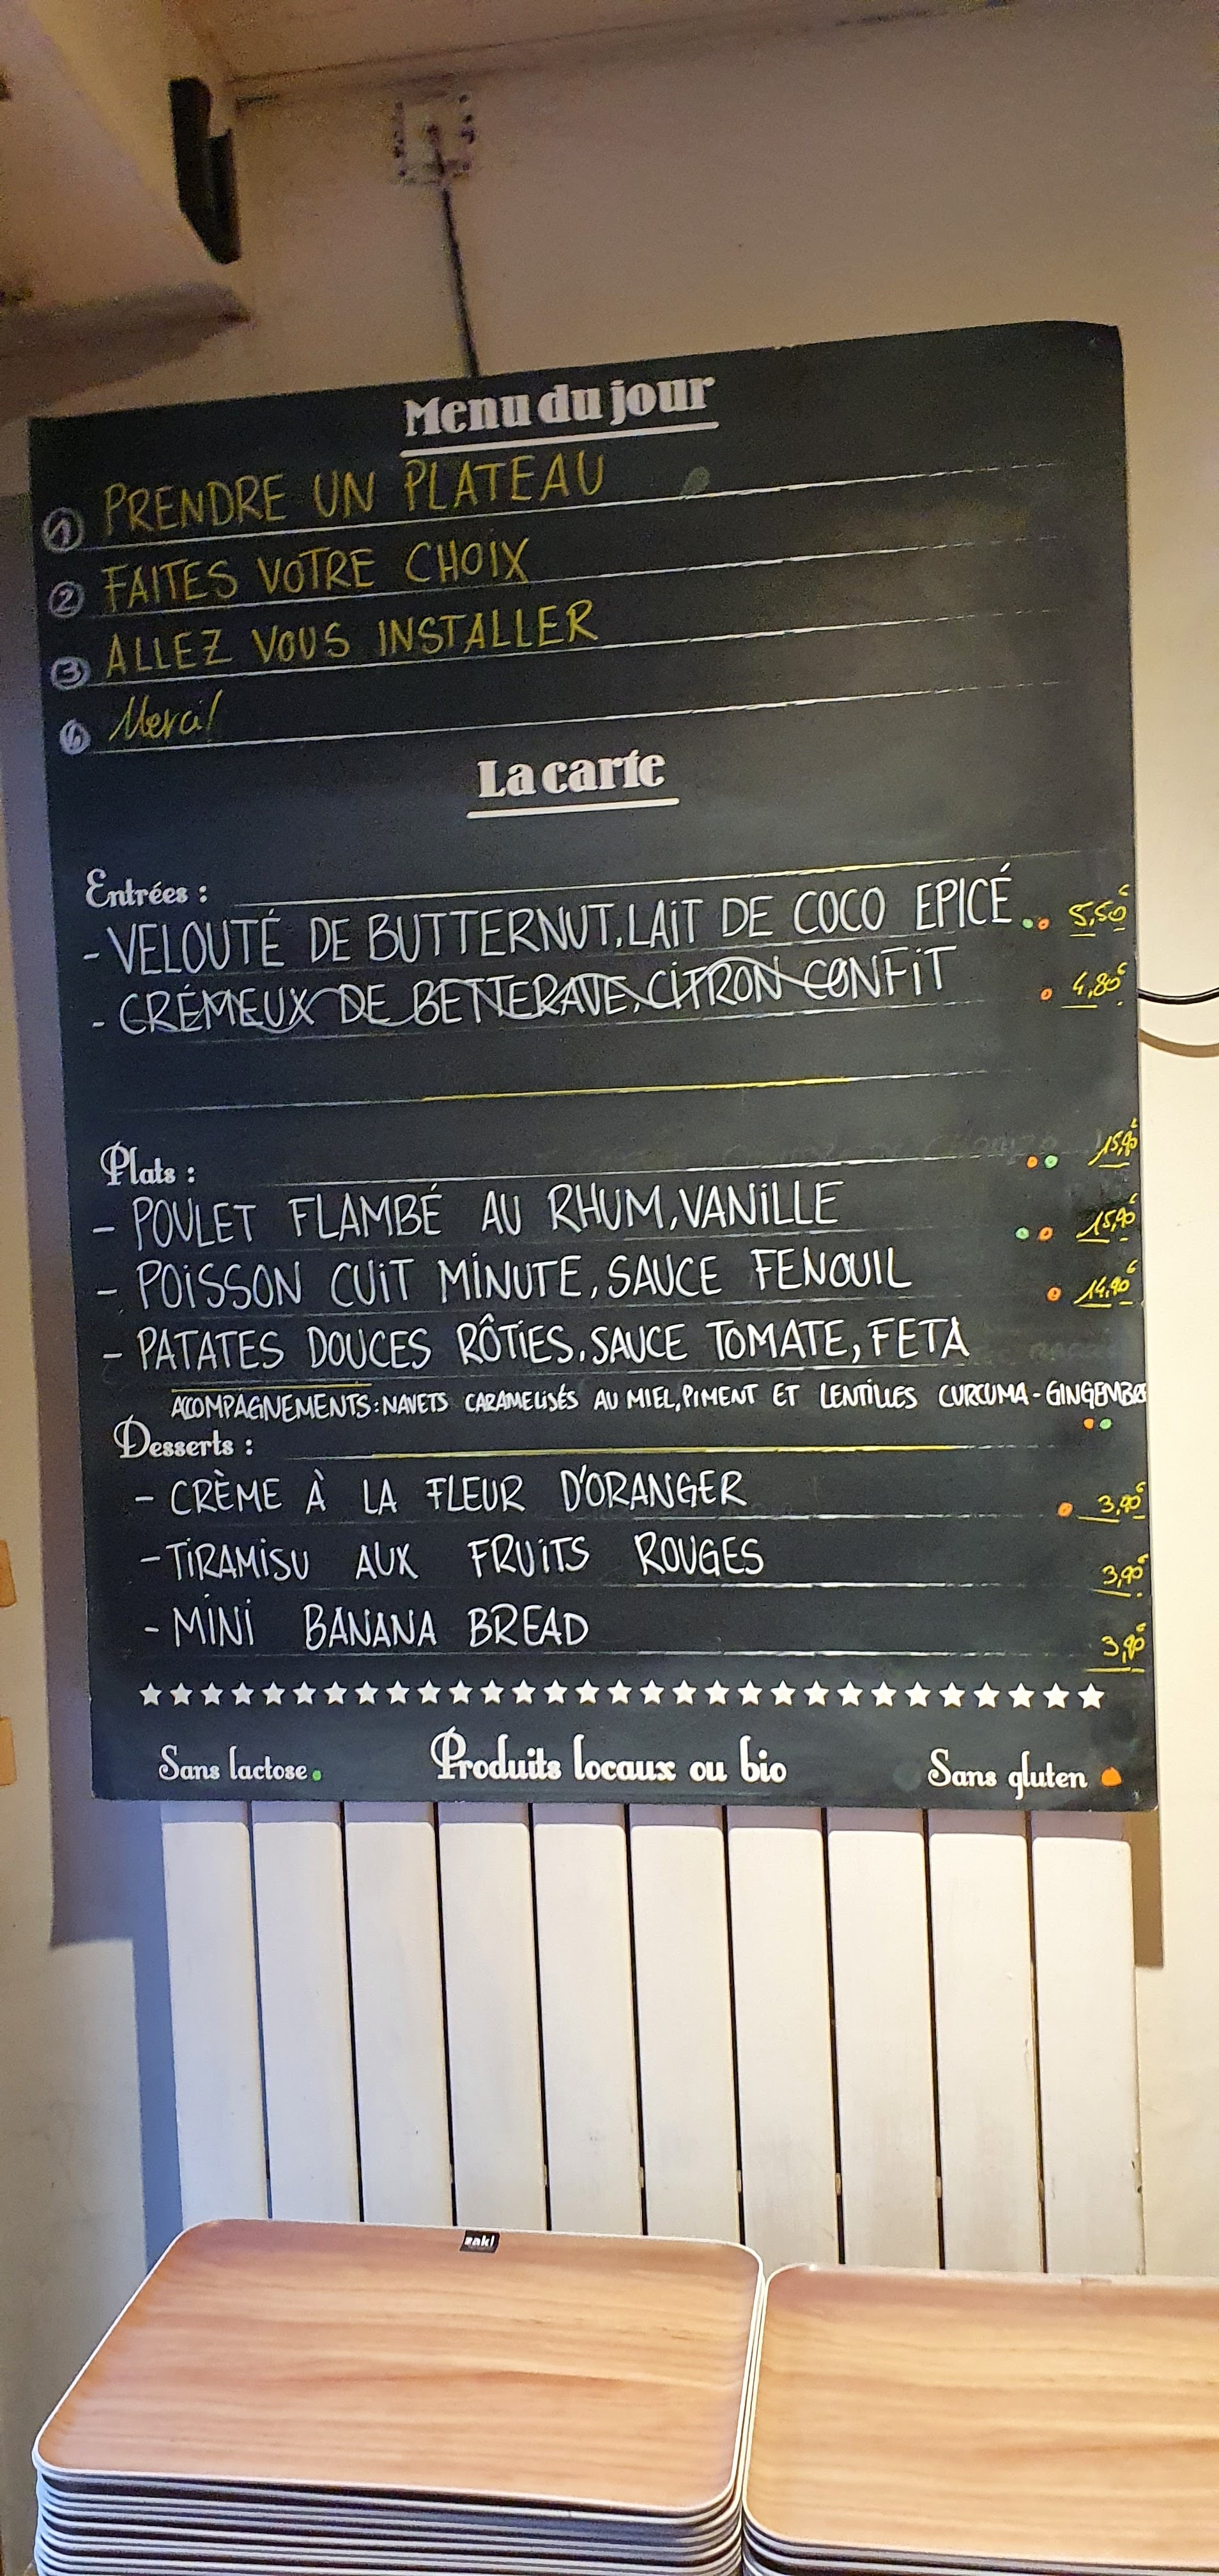 Menu du jour
1 PRENDRE UN PLATEAU
2 FAITES VOTRE CHOIX
3 ALLEZ VOUS INSTALLER
Merci!
La carte
Entrées :
- VELOUTÉ DE BUTTERNUT, LAIT DE COCO EPICÉ 5,50€
- CRÉMEUX DE BETTERAVE, CITRON CONFIT 4,80€
Plats : 15,90€
- POULET FLAMBÉ AU RHUM, VANILLE 15,90€
- POISSON CUIT MINUTE, SAUCE FENOUIL 14,90€
- PATATES DOUCES RÔTIES, SAUCE TOMATE, FETA
ACCOMPAGNEMENTS: NAVETS CARAMELISÉS AU MIEL, PIMENT ET LENTILLES CURCUMA - GINGEMBRE
Desserts :
- CRÈME À LA FLEUR D'ORANGER 3,90€
- TIRAMISU AUX FRUITS ROUGES 3,90€
- MINI BANANA BREAD 3,90€
Sans lactose Produits locaux ou bio Sans gluten
zak!